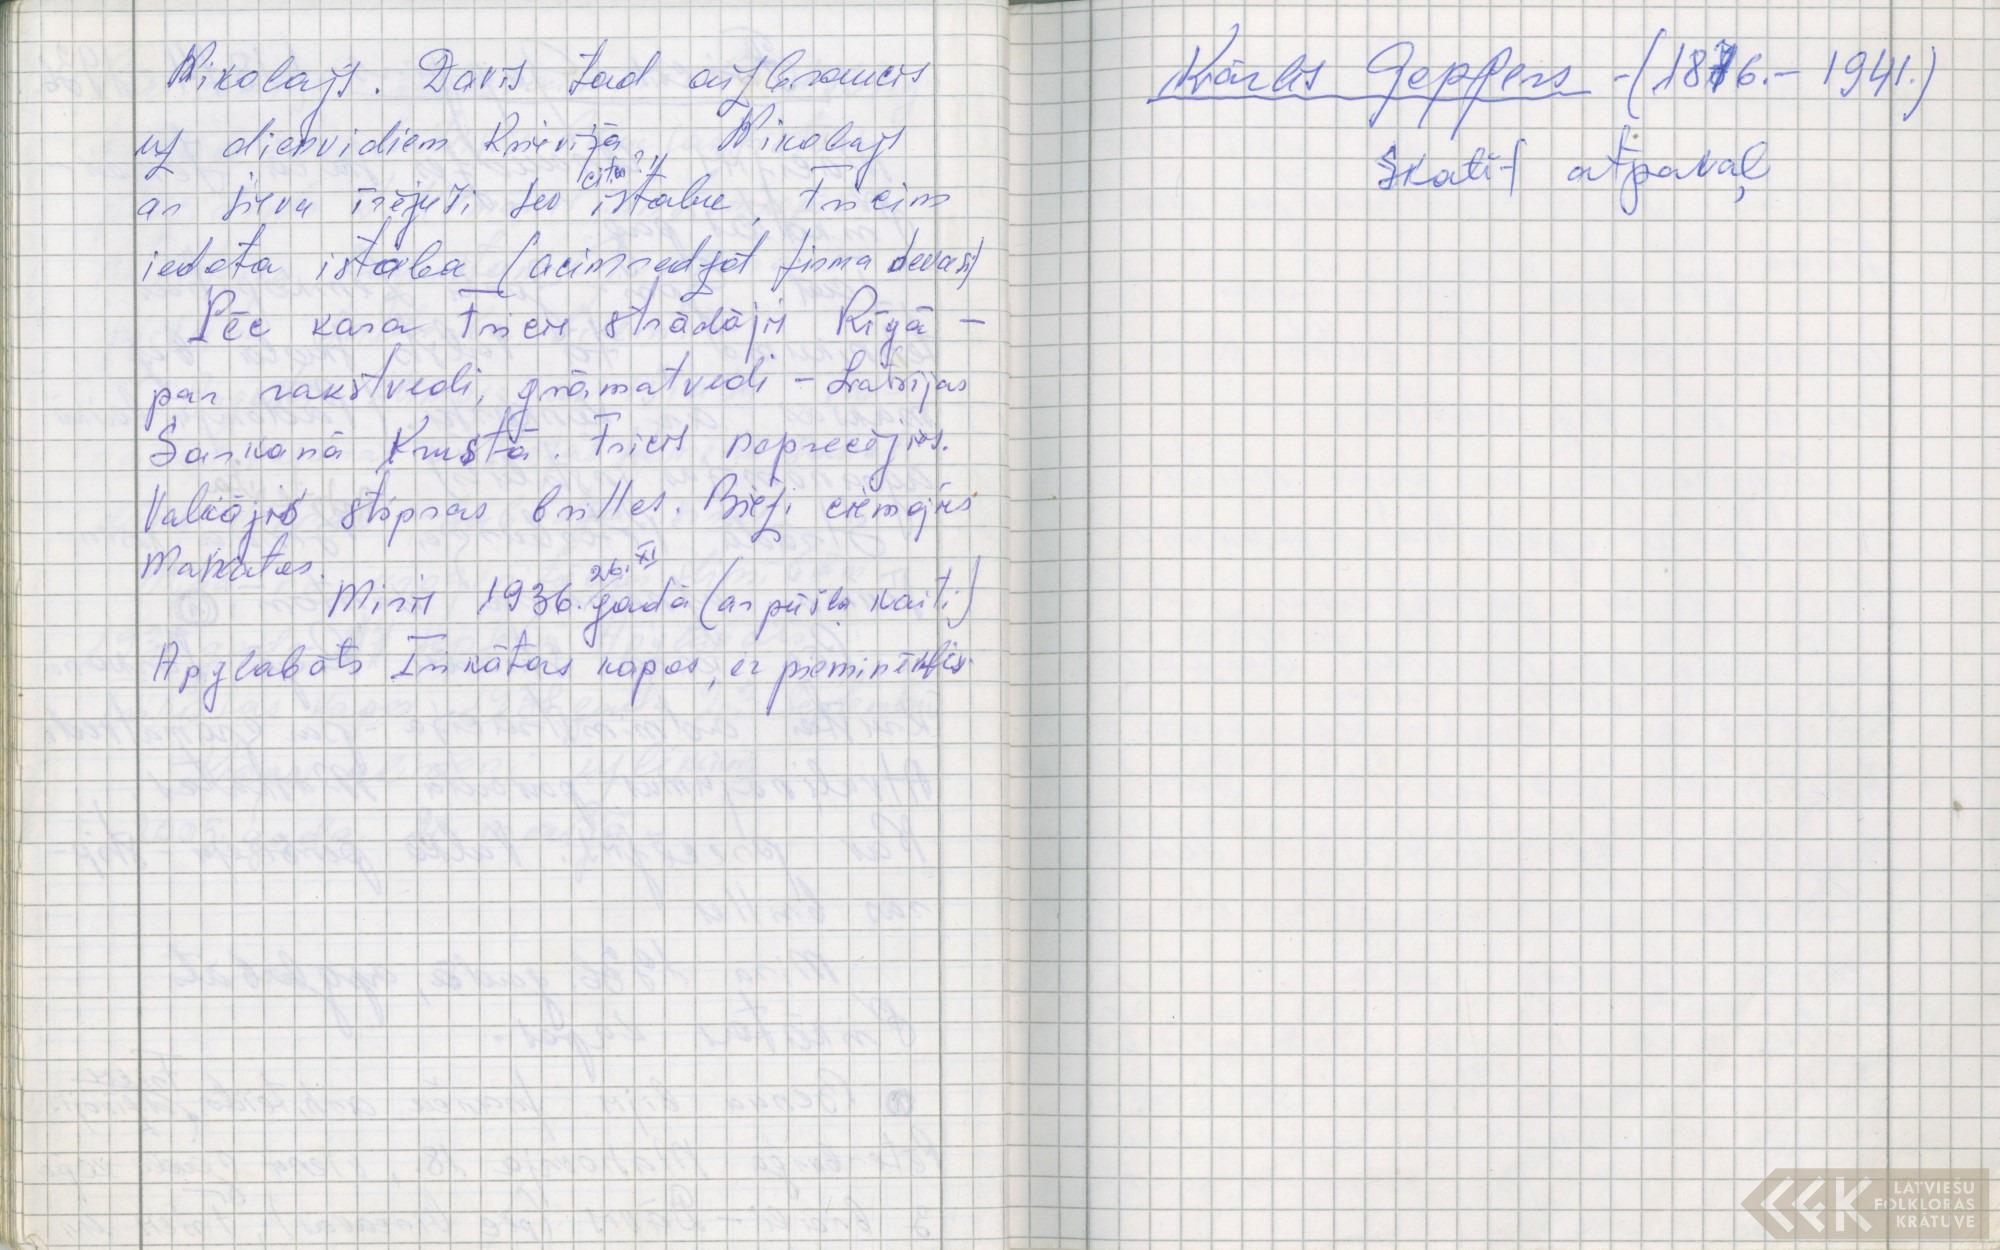 Nikolajs. Dāvis tad aizbraucis
uz dienvidiem Krievijā. Nikolajs
ar sievu īrējuši sev citu? istabu, Fricim
iedota istaba (acīmredzot firma devusi)
Pēc kara Fricis strādājis Rīgā –
par rakstvedi, grāmatvedi – Latvijas
Sarkanā Krustā. Fricis neprecējies.
Valkājis stipras brilles. Bieži ciemojies
Mankatos.
Miris 1936. 26. XI gadā (ar pūšļa kaiti)
Apglabāts Trikātas kapos, ir piemineklis.
Kārlis Geppers – (1876. – 1941.)
Skatīt atpakaļ
LATVIEŠU
FOLKLORAS
KRĀTUVE